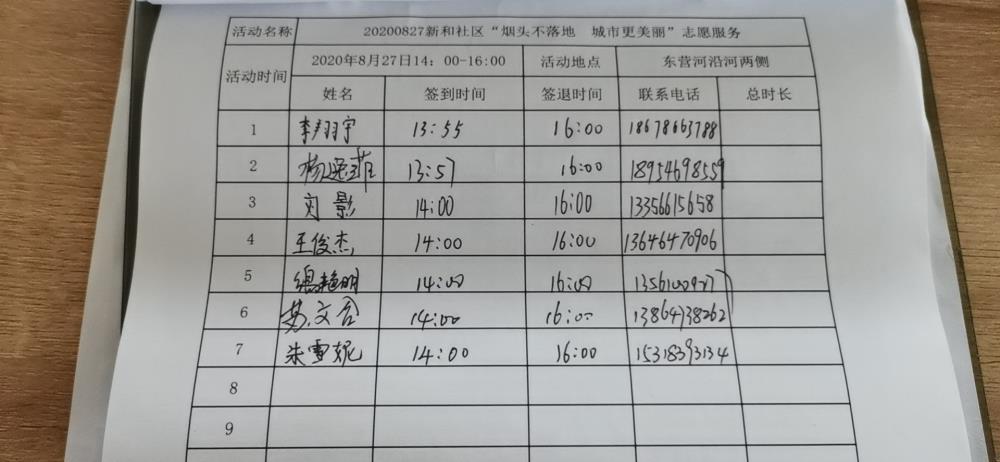 活动名称 20200827新和社区“烟头不落地 城市更美丽”志愿服务
活动时间 2020年8月27日14：00-16:00 活动地点 东营河沿河两侧
姓名 签到时间 签退时间 联系电话 总时长
1 李翔宇 13:55 16:00 18678663788
2 杨 13:57 16:00 18954698559
3 刘影 14:00 16:00 13356615658
4 王俊杰 14:00 16:00 13646470906
5 艳明 14:00 16:00
6 苏文 14:00 16:00 13864738262
7 朱雪妮 14:00 16:00 15318393134
8
9